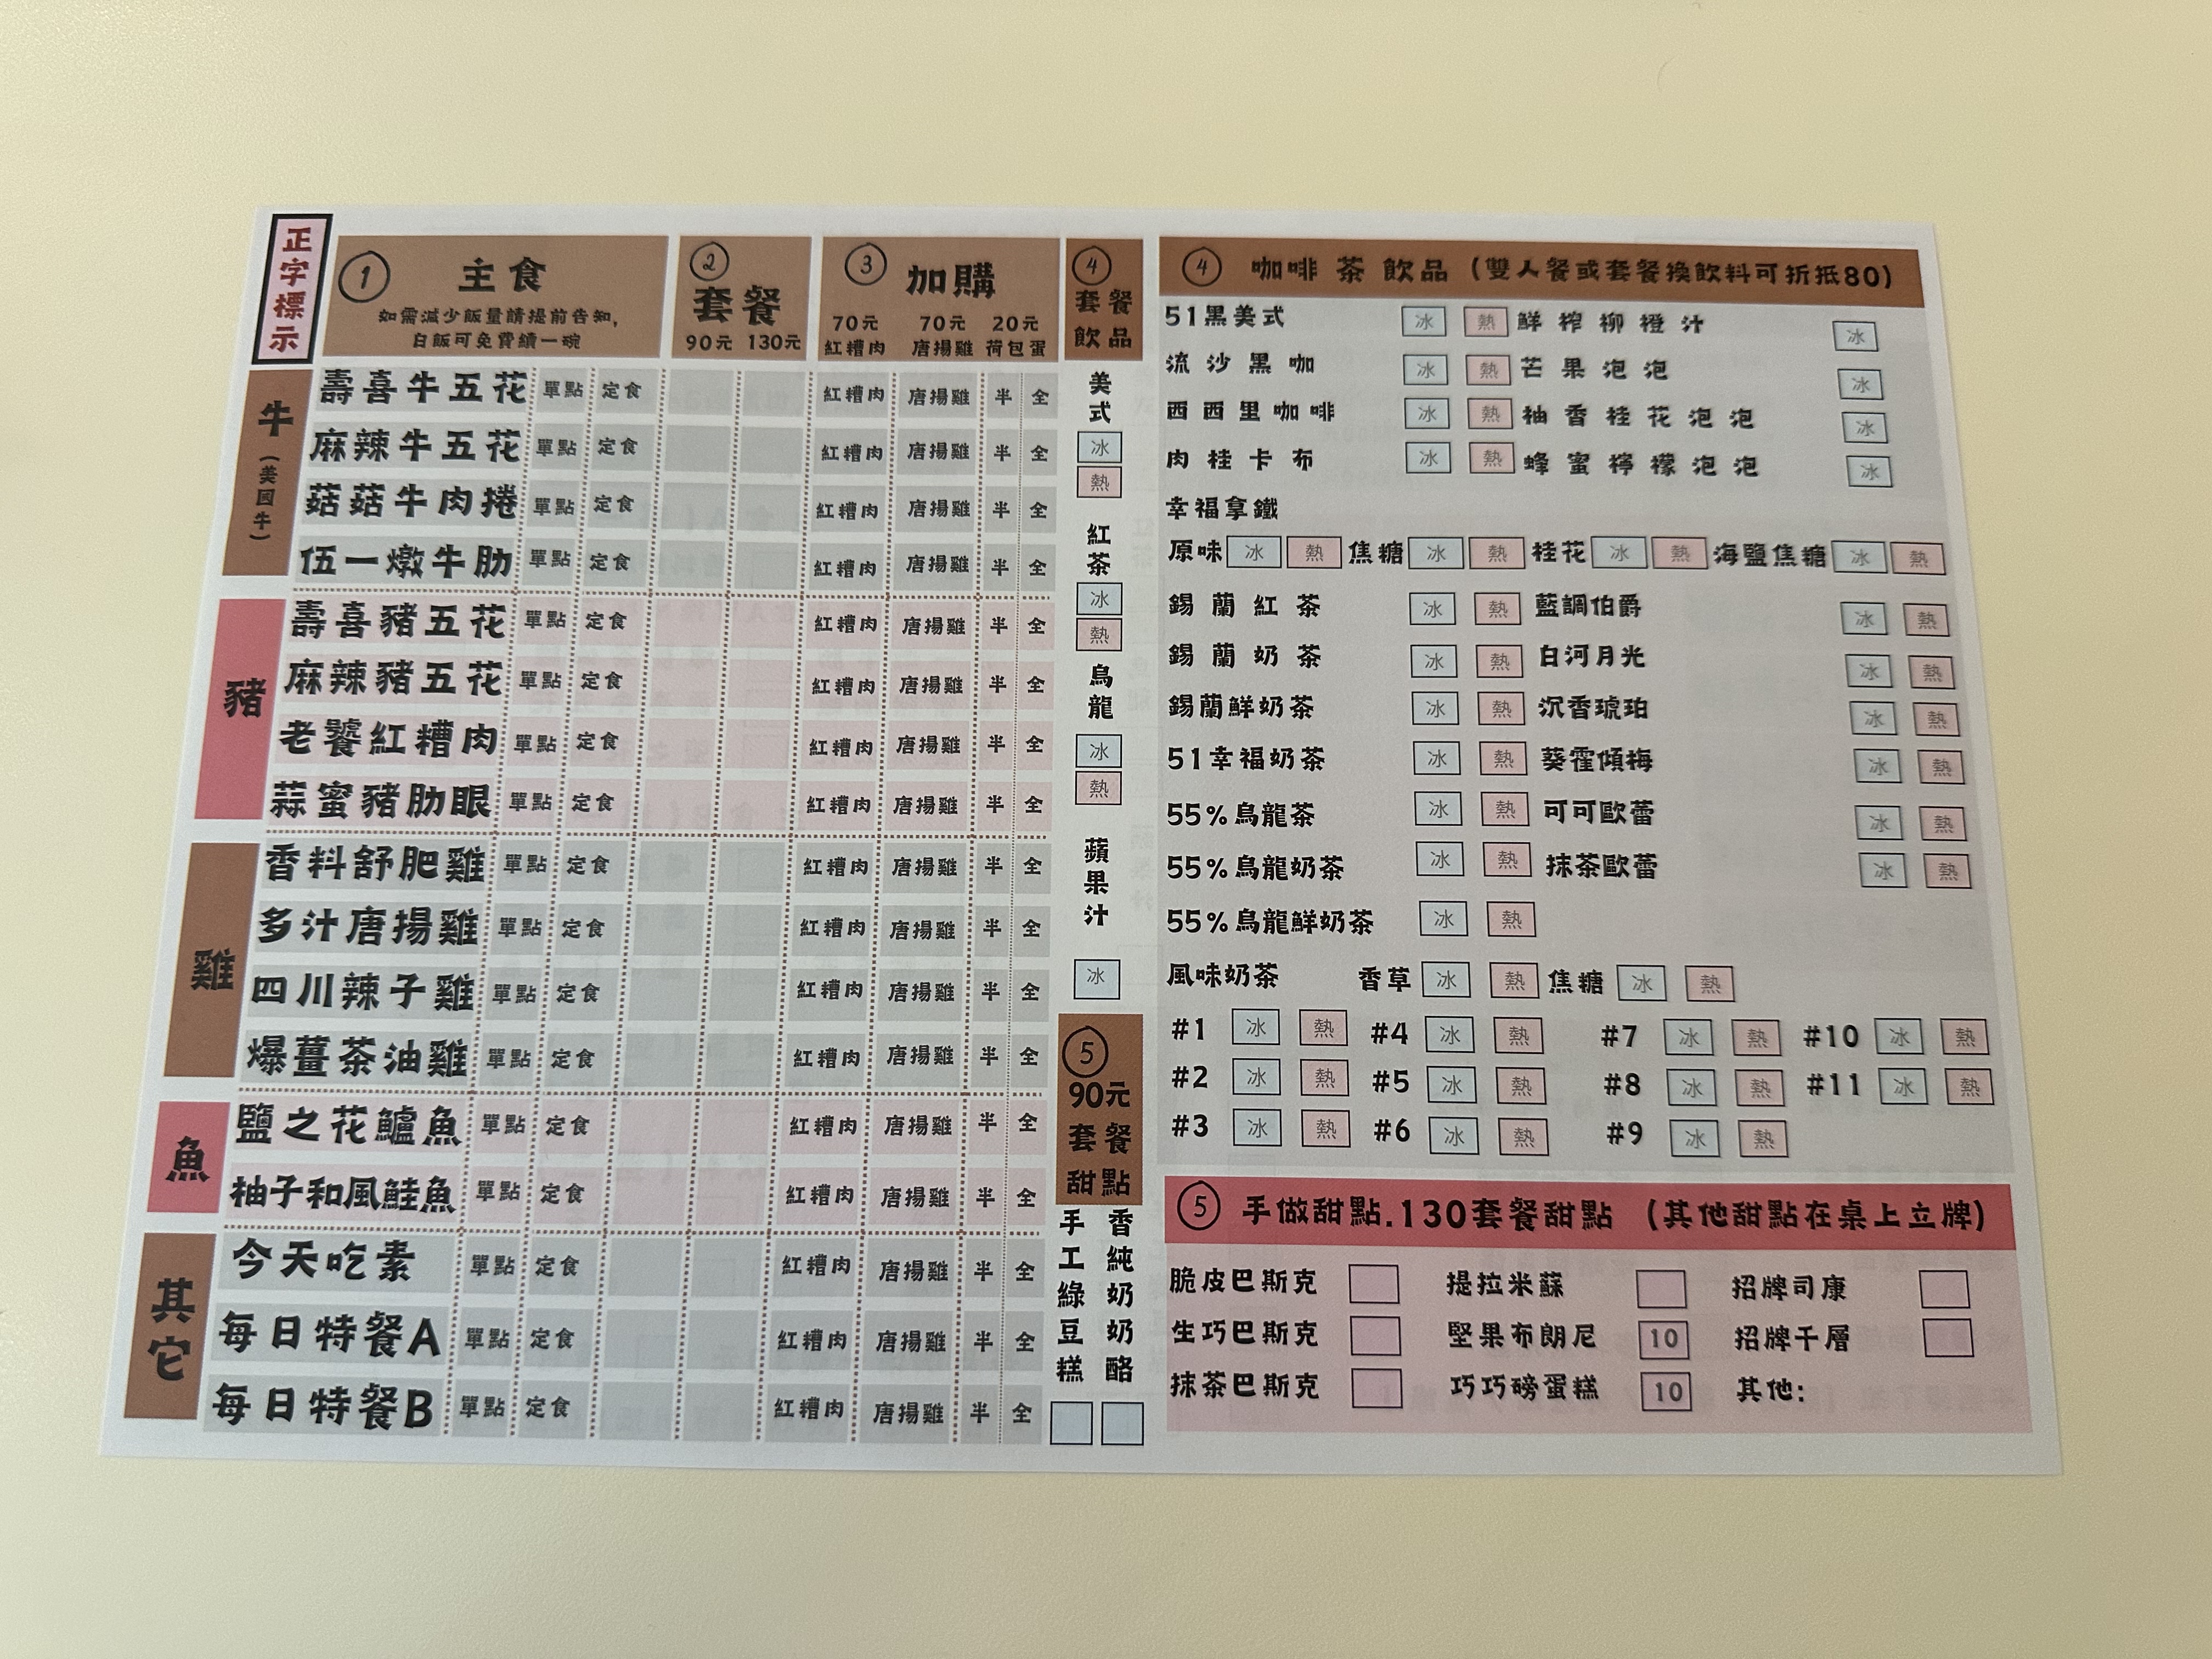 正字標示
① 主食
如需減少飯量請提前告知,
白飯可免費續一碗
② 套餐
90元 130元
③ 加購
70元 70元 20元
紅糟肉 唐揚雞 荷包蛋
牛(美國牛)
壽喜牛五花 單點 定食 紅糟肉 唐揚雞 半 全
麻辣牛五花 單點 定食 紅糟肉 唐揚雞 半 全
菇菇牛肉捲 單點 定食 紅糟肉 唐揚雞 半 全
伍一燉牛肋 單點 定食 紅糟肉 唐揚雞 半 全
豬
壽喜豬五花 單點 定食 紅糟肉 唐揚雞 半 全
麻辣豬五花 單點 定食 紅糟肉 唐揚雞 半 全
老饕紅糟肉 單點 定食 紅糟肉 唐揚雞 半 全
蒜蜜豬肋眼 單點 定食 紅糟肉 唐揚雞 半 全
雞
香料舒肥雞 單點 定食 紅糟肉 唐揚雞 半 全
多汁唐揚雞 單點 定食 紅糟肉 唐揚雞 半 全
四川辣子雞 單點 定食 紅糟肉 唐揚雞 半 全
爆薑茶油雞 單點 定食 紅糟肉 唐揚雞 半 全
魚
鹽之花鱸魚 單點 定食 紅糟肉 唐揚雞 半 全
柚子和風鮭魚 單點 定食 紅糟肉 唐揚雞 半 全
其它
今天吃素 單點 定食 紅糟肉 唐揚雞 半 全
每日特餐A 單點 定食 紅糟肉 唐揚雞 半 全
每日特餐B 單點 定食 紅糟肉 唐揚雞 半 全
④
套餐
飲品
美式
冰
熱
紅茶
冰
熱
烏龍
冰
熱
蘋果汁
冰
⑤
90元
套餐
甜點
手工綠豆糕
香純奶奶酪
④ 咖啡 茶 飲品 (雙人餐或套餐換飲料可折抵80)
51黑美式 冰 熱 鮮榨柳橙汁 冰
流沙黑咖 冰 熱 芒果泡泡 冰
西西里咖啡 冰 熱 柚香桂花泡泡 冰
肉桂卡布 冰 熱 蜂蜜檸檬泡泡 冰
幸福拿鐵
原味 冰 熱 焦糖 冰 熱 桂花 冰 熱 海鹽焦糖 冰 熱
錫蘭紅茶 冰 熱 藍調伯爵 冰 熱
錫蘭奶茶 冰 熱 白河月光 冰 熱
錫蘭鮮奶茶 冰 熱 沉香琥珀 冰 熱
51幸福奶茶 冰 熱 葵霍傾梅 冰 熱
55%烏龍茶 冰 熱 可可歐蕾 冰 熱
55%烏龍奶茶 冰 熱 抹茶歐蕾 冰 熱
55%烏龍鮮奶茶 冰 熱
風味奶茶 香草 冰 熱 焦糖 冰 熱
#1 冰 熱 #4 冰 熱 #7 冰 熱 #10 冰 熱
#2 冰 熱 #5 冰 熱 #8 冰 熱 #11 冰 熱
#3 冰 熱 #6 冰 熱 #9 冰 熱
⑤ 手做甜點.130套餐甜點 (其他甜點在桌上立牌)
脆皮巴斯克 提拉米蘇 招牌司康
生巧巴斯克 堅果布朗尼 10 招牌千層
抹茶巴斯克 巧巧磅蛋糕 10 其他: